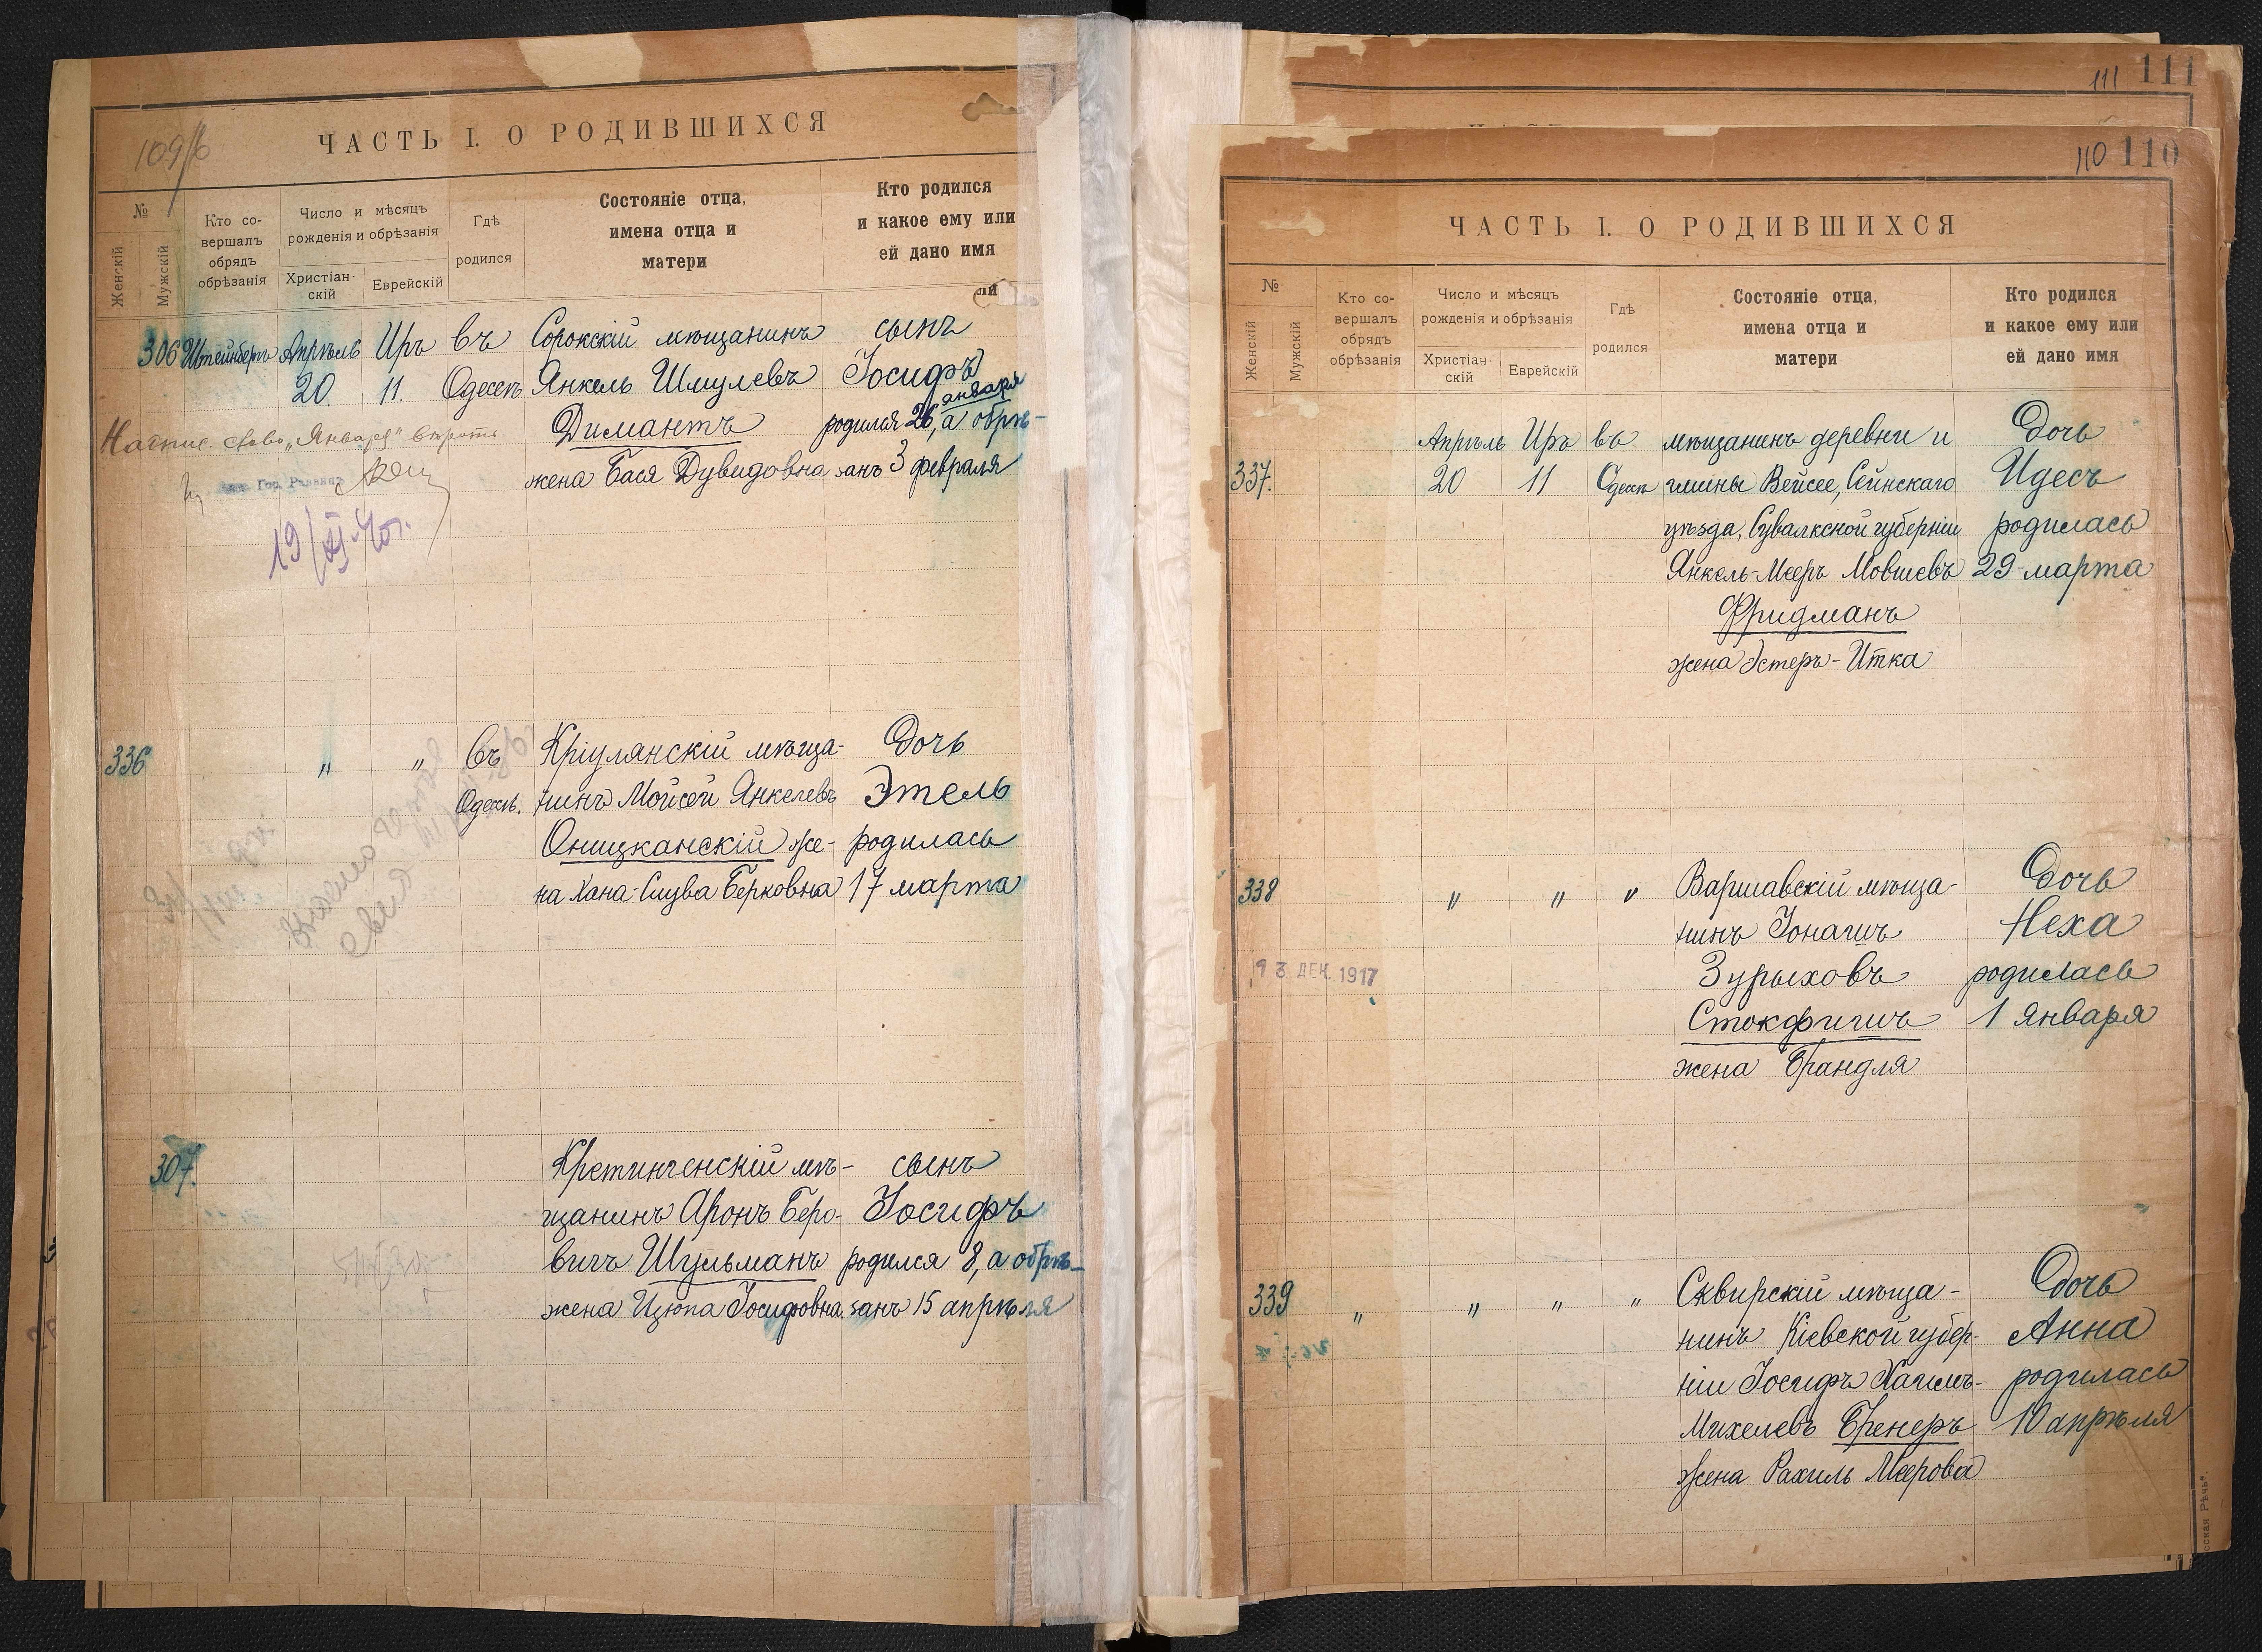 109/б
ЧАСТЬ I. О РОДИВШИХСЯ
№
Женскій
Мужскій
Кто со-
вершалъ
обрядъ
обрѣзанія
Число и мѣсяцъ
рожденія и обрѣзанія
Христіан-
скій
Еврейскій
Гдѣ
родился
Состояніе отца,
имена отца и
матери
Кто родился
и какое ему или
ей дано имя
ли
306 Штейнбергъ Апрѣль Иръ въ Сорокскій мѣщанинъ сынъ
20. 11. Одессѣ Янкель Шмулевъ Іосифъ
января
Димантъ родился 26, а обрѣ-
жена Бася Дувидовна занъ 3 февраля
слово „Января"
19/XI-40г.
336 " " въ Кріулянскій мѣща- Дочь
Одессѣ. нинъ Мойсей Янкелевъ Этель
Оницканскій же- родилась
на Хана-Слува Берковна 17 марта
307. Кретингенскій мѣ- сынъ
щанинъ Аронъ Беро- Іосифъ
вичъ Шульманъ родился 8, а обрѣ-
жена Цюпа Іосифовна. занъ 15 апрѣля
111 111
110 110
ЧАСТЬ I. О РОДИВШИХСЯ
№
Женскій
Мужскій
Кто со-
вершалъ
обрядъ
обрѣзанія
Число и мѣсяцъ
рожденія и обрѣзанія
Христіан-
скій
Еврейскій
Гдѣ
родился
Состояніе отца,
имена отца и
матери
Кто родился
и какое ему или
ей дано имя
Апрѣль Иръ въ мѣщанинъ деревни и Дочь
337. 20 11 Одессѣ гмины Вейсее, Сейнскаго Идесъ
уѣзда, Сувалкской губерніи родилась
Янкель-Мееръ Мовшевъ 29 марта
Фридманъ
жена Эстеръ-Итка
338 " " " Варшавскій мѣща- Дочь
нинъ Іонашъ Неха
13 ДЕК. 1917 Зурыховъ родилась
Стокфишъ 1 января
жена Брандля
339 " " " " Сквирскій мѣща- Дочь
нинъ Кіевской губер- Анна
ніи Іосифъ Хаимъ- родилась
Михелевъ Бренеръ 10 апрѣля
жена Рахиль Меерова